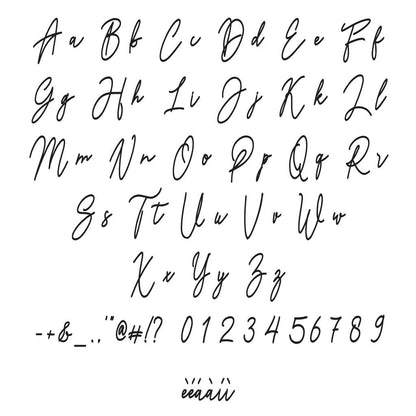 A a B b C c D d E e F f
G g H h I i J j K k L l
M m N n O o P p Q q R r
S s T t U u V v W w
X x Y y Z z
-+&_.,'"@#!? 0 1 2 3 4 5 6 7 8 9
èéäàìí